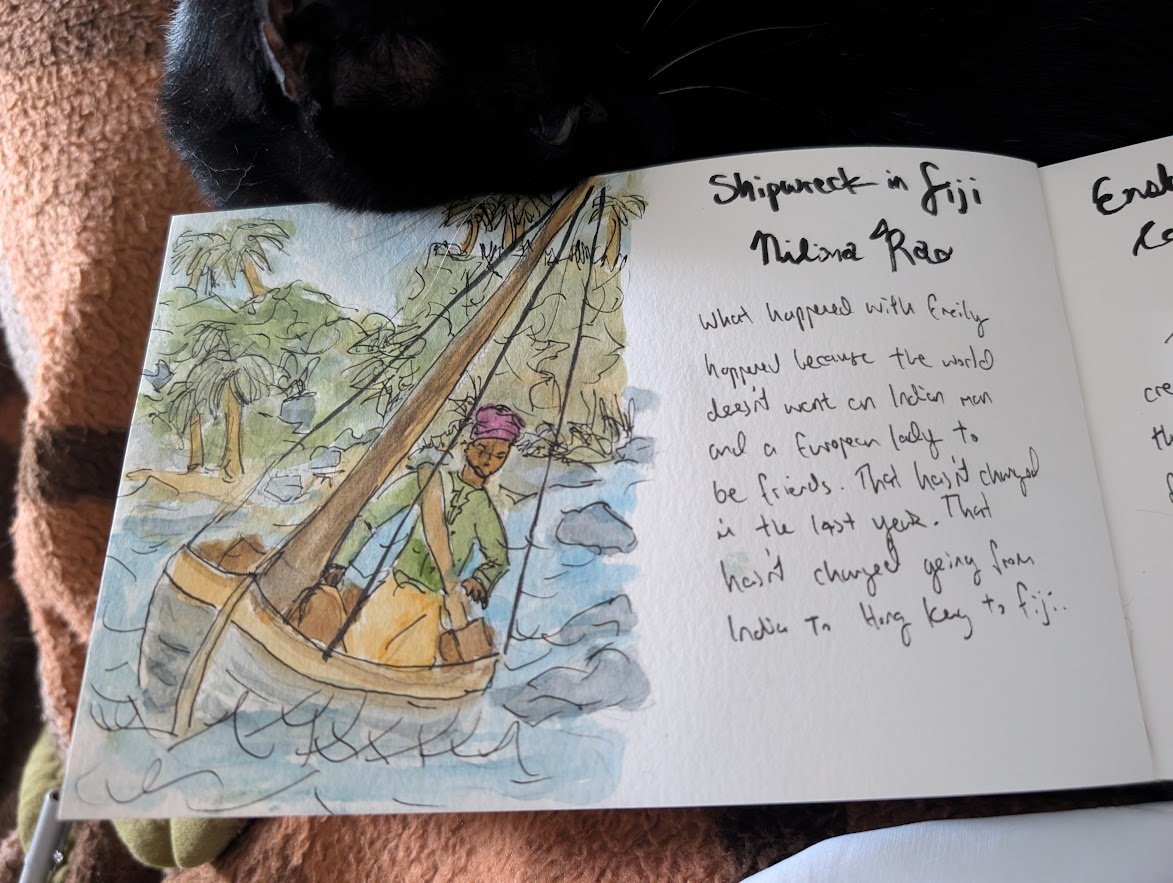 Shipwreck in Fiji
Nilima Rao
What happened with Emily
happened because the world
doesn't want an Indian man
and a European lady to
be friends. That hasn't changed
in the last year. That
hasn't changed going from
India to Hong Kong to Fiji.